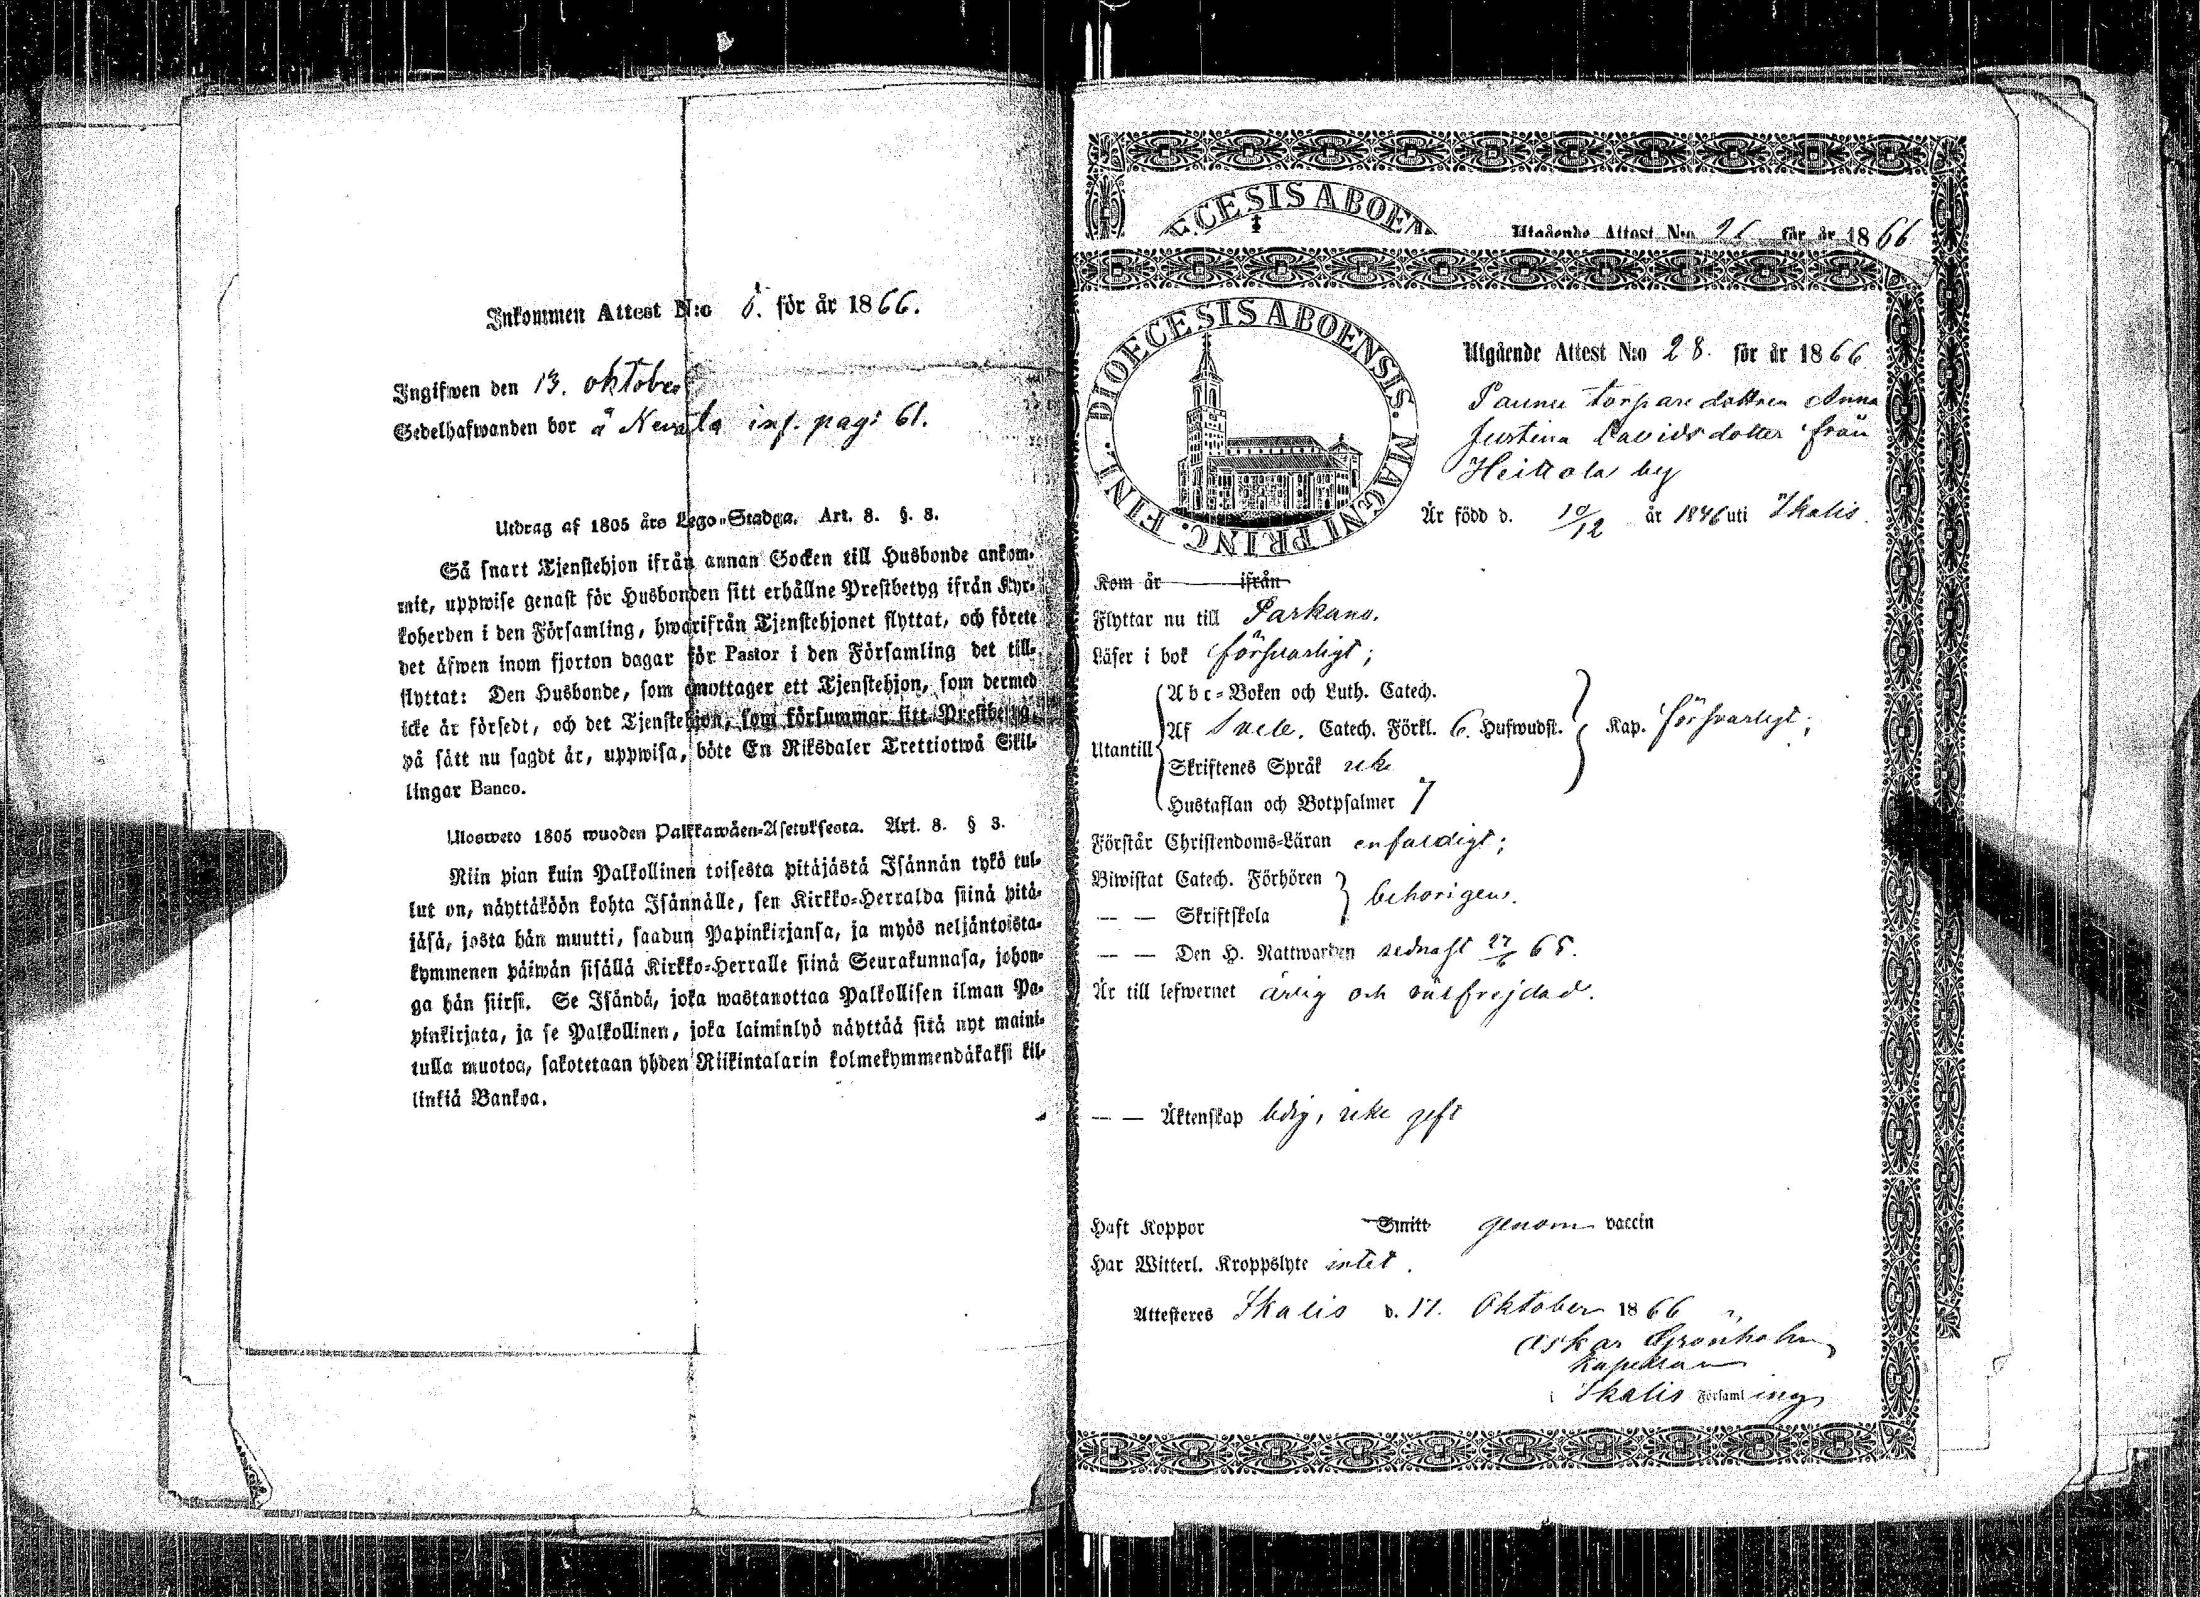 Inkommen Attest N:o 5. för år 1866.
Ingifwen den 13. oktober
Sedelhafwanden bor å inf. pag: 61.
Utdrag af 1805 års Lego-Stadga. Art. 8. §. 3.
Så snart Tjenstehjon ifrån annan Socken till Husbonde ankom-
mit, uppwise genast för Husbonden sitt erhållne Prestbetyg ifrån Kyr-
koherden i den Församling, hwarifrån Tjenstehjonet flyttat, och förete
det äfwen inom fjorton dagar för Pastor i den Församling det till-
flyttat: Den Husbonde, som emottager ett Tjenstehjon, som dermed
icke är försedt, och det Tjenstehjon, som försummar sitt Prestbetyg,
på sätt nu sagdt är, uppwisa, böte En Riksdaler Trettiotwå Skil-
lingar Banco.
Ulosweto 1805 wuoden Palkkawäen-Asetuksesta. Art. 8. § 3.
Niin pian kuin Palkollinen toisesta pitäjästä Isännän tykö tul-
lut on, näyttäköön kohta Isännälle, sen Kirkko-Herralda siinä pitä-
jäsä, josta hän muutti, saadun Papinkirjansa, ja myös neljäntoista-
kymmenen päiwän sisällä Kirkko-Herralle siinä Seurakunnasa, johon-
ga hän siirsi. Se Isändä, joka wastanottaa Palkollisen ilman Pa-
pinkirjata, ja se Palkollinen, joka laiminlyö näyttää sitä nyt maini-
tulla muotoa, sakotetaan yhden Riikintalarin kolmekymmendäkaksi kil-
linkiä Bankoa.
ECESIS ABOEN
Utgående Attest N:o 26 för år 1866
DIOECESIS ABOENSIS. MAGNI PRINC. FINL.
Utgående Attest N:o 28. för år 1866
torpare dottren Anna
Justina Davidsdotter från
Heittola by
Är född d. 10/12 år 1846 uti Ikalis.
Kom år ifrån
Flyttar nu till Parkano.
Läser i bok försvarligt;
Abc-Boken och Luth. Catech.
Utantill
Af Sveb. Catech. Förkl. 6. Hufwudst. Kap. försvarligt;
Skriftenes Språk icke
Hustaflan och Botpsalmer 7
Förstår Christendoms-Läran enfaldigt;
Biwistat Catech. Förhören
— — Skriftskola behörigen.
— — Den H. Nattwarden sednast 27/6 65.
Är till lefwernet ärlig och välfrejdad.
— — Äktenskap ledig, icke gift
Haft Koppor Smitt genom vaccin
Har Witterl. Kroppslyte intet.
Attesteres Ikalis d. 17. Oktober 1866
Oskar Grönholm
Kapellan
i Ikalis Församling